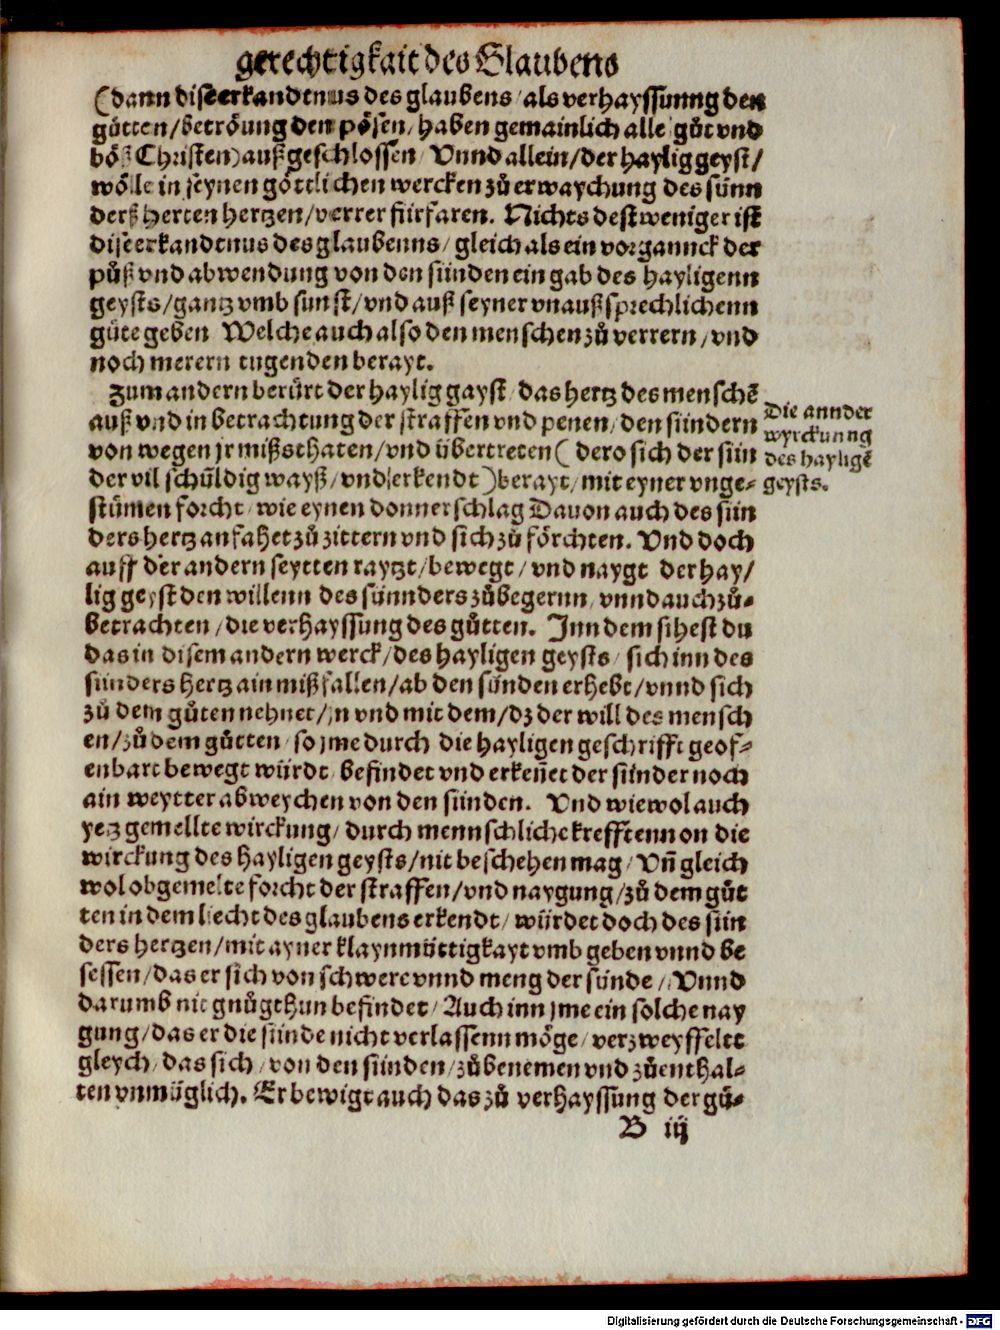 gerechtigkait des Glaubens
(dann dise erkandtnus des glaubens / als verhayssunng den
gůtten / betröung den pösen / haben gemainlich alle gůt vnd
böß Christen) außgeschlossen / Vnnd allein / der haylig geyst /
wölle in seynen göttlichen wercken zů erwaychung des sünn
derß herten hertzen / verrer fürfaren. Nichts destweniger ist
dise erkandtnus des glaubenns / gleich als ein vorgannck der
půß vnd abwendung von den sünden ein gab des hayligenn
geysts / gantz vmb sunst / vnd auß seyner vnaußsprechlichenn
güte geben Welche auch also den menschen zů verrern / vnd
noch merern tugenden berayt.
Zum andern berürt der haylig gayst / das hertz des menschẽ
auß vnd in betrachtung der straffen vnd penen / den sündern
von wegen jr mißsthaten / vnd übertreten ( dero sich der sün
der vil schüldig wayß / vnd erkendt ) berayt / mit eyner vnge⸗
stümen forcht / wie eynen donnerschlag Dauon auch des sün
ders hertz anfahet zů zittern vnd sich zů förchten. Vnd doch
auff der andern seytten raytzt / bewegt / vnd naygt der hay /
lig geyst den willenn des sünnders zůbegernn / vnnd auch zů⸗
betrachten / die verhayssung des gůtten. Inn dem sihest du
das in disem andern werck / des hayligen geysts / sich inn des
sünders hertz ain mißfallen / ab den sünden erhebt / vnnd sich
zů dem gůten nehnet / jn vnd mit dem / dz der will des mensch
en / zů dem gůtten / so jme durch die hayligen geschrifft geof⸗
enbart bewegt würdt / befindet vnd erkeñet der sünder noch
ain weytter abweychen von den sünden. Vnd wiewol auch
yetz gemellte wirckung / durch mennschliche krefftenn on die
wirckung des hayligen geysts / nit beschehen mag / Vñ gleich
wol obgemelte forcht der straffen / vnd naygung / zů dem gůt
ten in dem liecht des glaubens erkendt / würdet doch des sün
ders hertzen / mit ayner klaynmüttigkayt vmbgeben vnnd be
sessen / das er sich von schwere vnnd meng der sünde / Vnnd
darumb nit gnůgthun befindet / Auch inn jme ein solche nay
gung / das er die sünde nicht verlassenn möge / verzweyffelt
gleych / das sich / von den sünden / zůbenemen vnd zůenthal⸗
ten vnmüglich. Er bewigt auch das zů verhayssung der gů⸗
Die annder
wyrckunng
des hayligẽ
geysts.
B iij
Digitalisierung gefördert durch die Deutsche Forschungsgemeinschaft - DFG